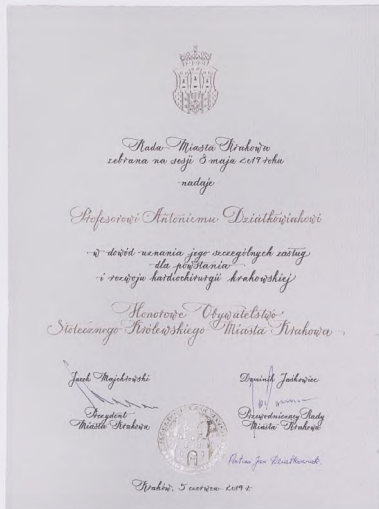 Rada Miasta Krakowa
zebrana na sesji 8 maja 2019 roku
nadaje
Profesorowi Antoniemu Dziatkowiakowi
w dowód uznania jego szczególnych zasług
dla powstania
i rozwoju kardiochirurgii krakowskiej
Honorowe Obywatelstwo
Stołecznego Królewskiego Miasta Krakowa
Jacek Majchrowski
Dominik Jaśkowiec
Prezydent
Miasta Krakowa
Przewodniczący Rady
Miasta Krakowa
Antoni Jan Dziatkowiak
Kraków, 5 czerwca 2019 r.